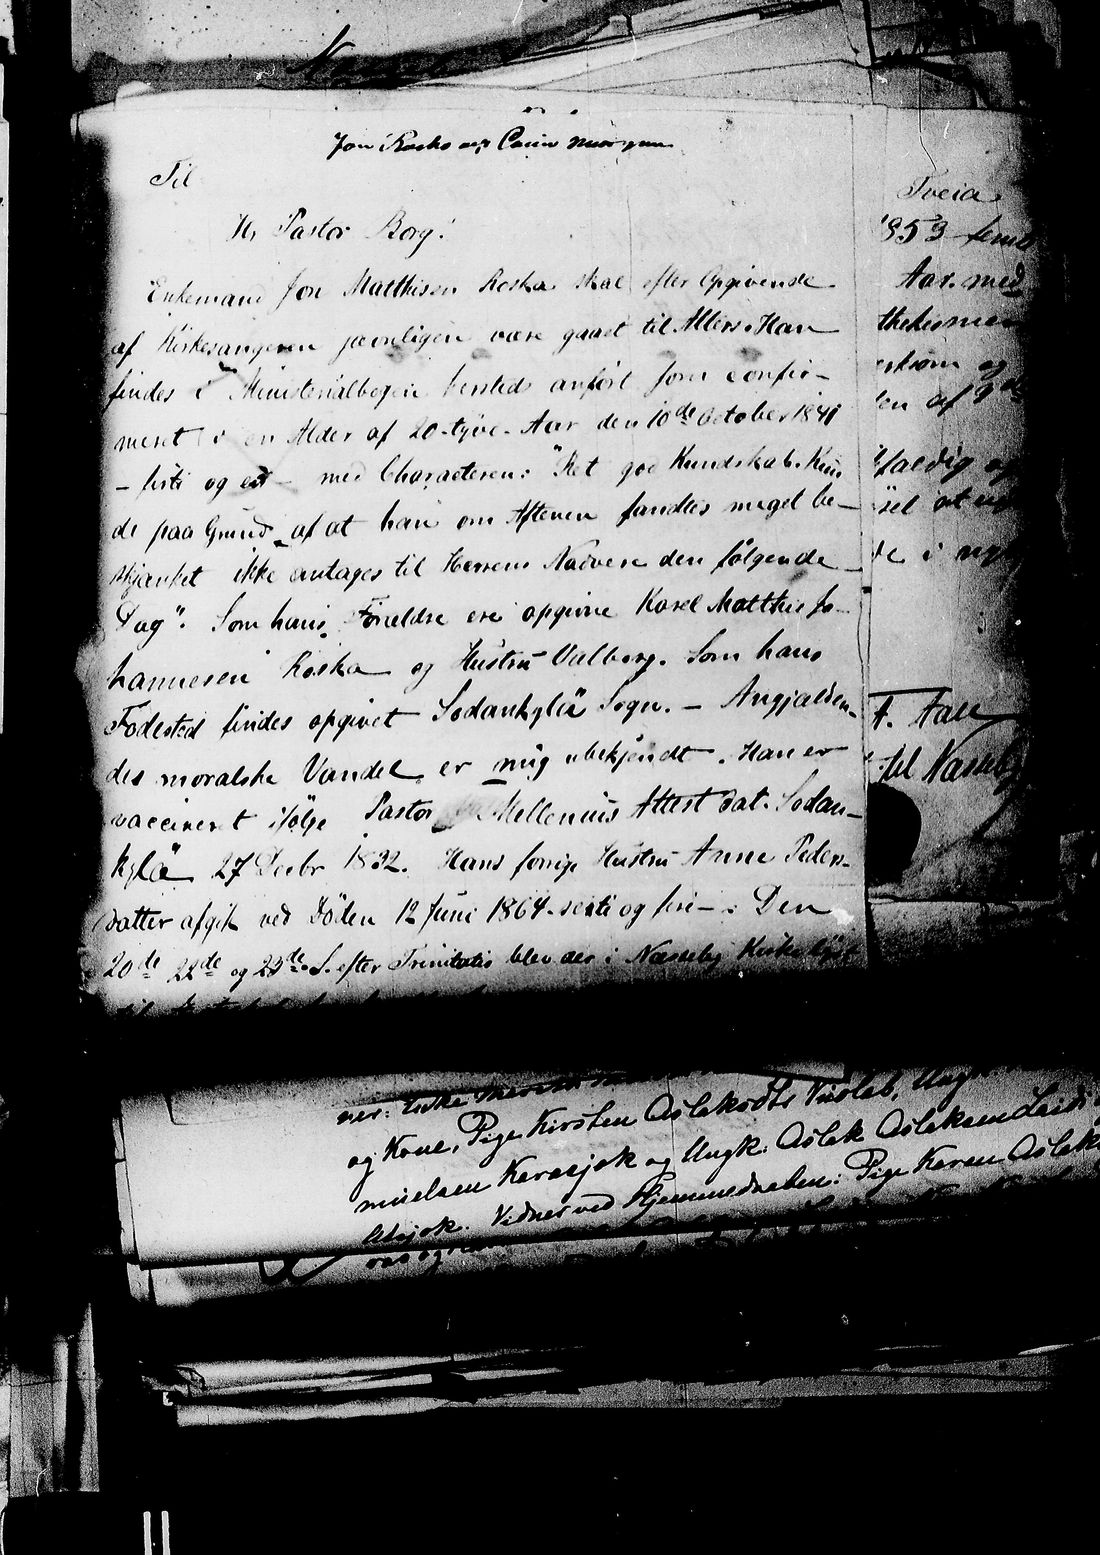 Til
Hr Pastor Borg!
Enkemand Jon Matthisen Roska skal efter Opgivende
af Kirkesangeren jævnligen være gaaet til Alters. Han
findes i Ministerialbogen hersteds anført som confir-
meret i en Alder af 20-tyve-Aar den 10de October 1841
- firti og et - med Characteren: "Ret god Kundskab. Kun-
de paa Grund af at han om Aftenen fandtes meget be-
skjænket ikke antages til Herrens Nadvere den følgende
Dag". Som hans Forældre ere opgivne Karel Matthis Jo-
hannesen Roska og Hustru Valborg. Som hans
Fødested findes opgivet Sodankylä Sogn. - Angjælden-
des moralske Vandel er mig ubekjendt. Han er
vaccineret ifølge Pastor Mellenius Attest dat. Sodan-
kylä 27 Decbr 1832. Hans forrige Hustru Anne Peders-
datter afgik ved Døden 12 Juni 1864-sexti og fire-. Den
20de 22de og 23de S. efter Trinitatis blev der i Næsseby Kirke lyst
Tveia
1853 femti
Aar med
af 9de
faldig og
F. Aall
til Næsseby
og Kone, Pige Kirsten Aslaksdtr Vuolab, Ungk.
nielsen Karasjok og Ungk. Aslak Aslaksen Laiti
Vidner ved Hjemmedaaben: Pige Karen Aslaks